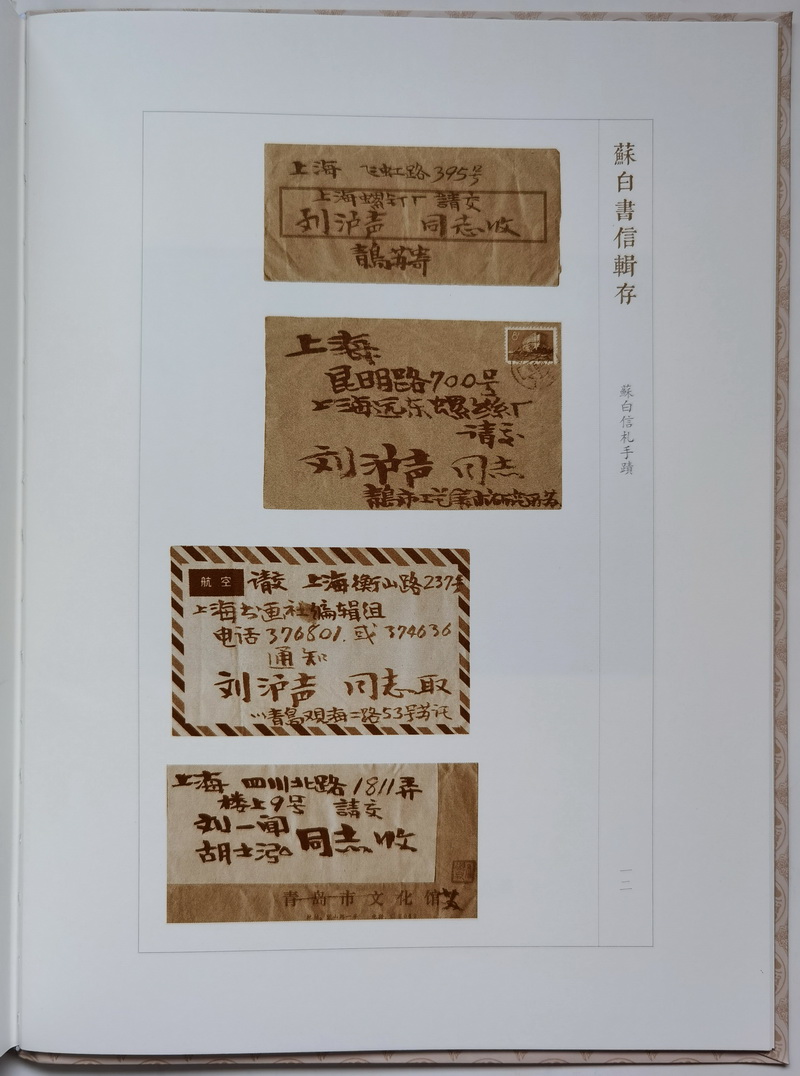 蘇白書信輯存
蘇白信札手蹟
一二
上海 飞虹路395号
上海螺钉厂 請交
刘沪声 同志收
青島苏寄
上海
昆明路700号
上海远东螺丝厂
请交
刘沪声 同志
航空
请交 上海衡山路237号
上海书画社编辑组
电话376801.或374636
通知
刘沪声 同志取
青島观海二路53号苏託
上海 四川北路1811弄
楼上9号 請交
刘一闻
胡士泓 同志收
青岛市文化馆